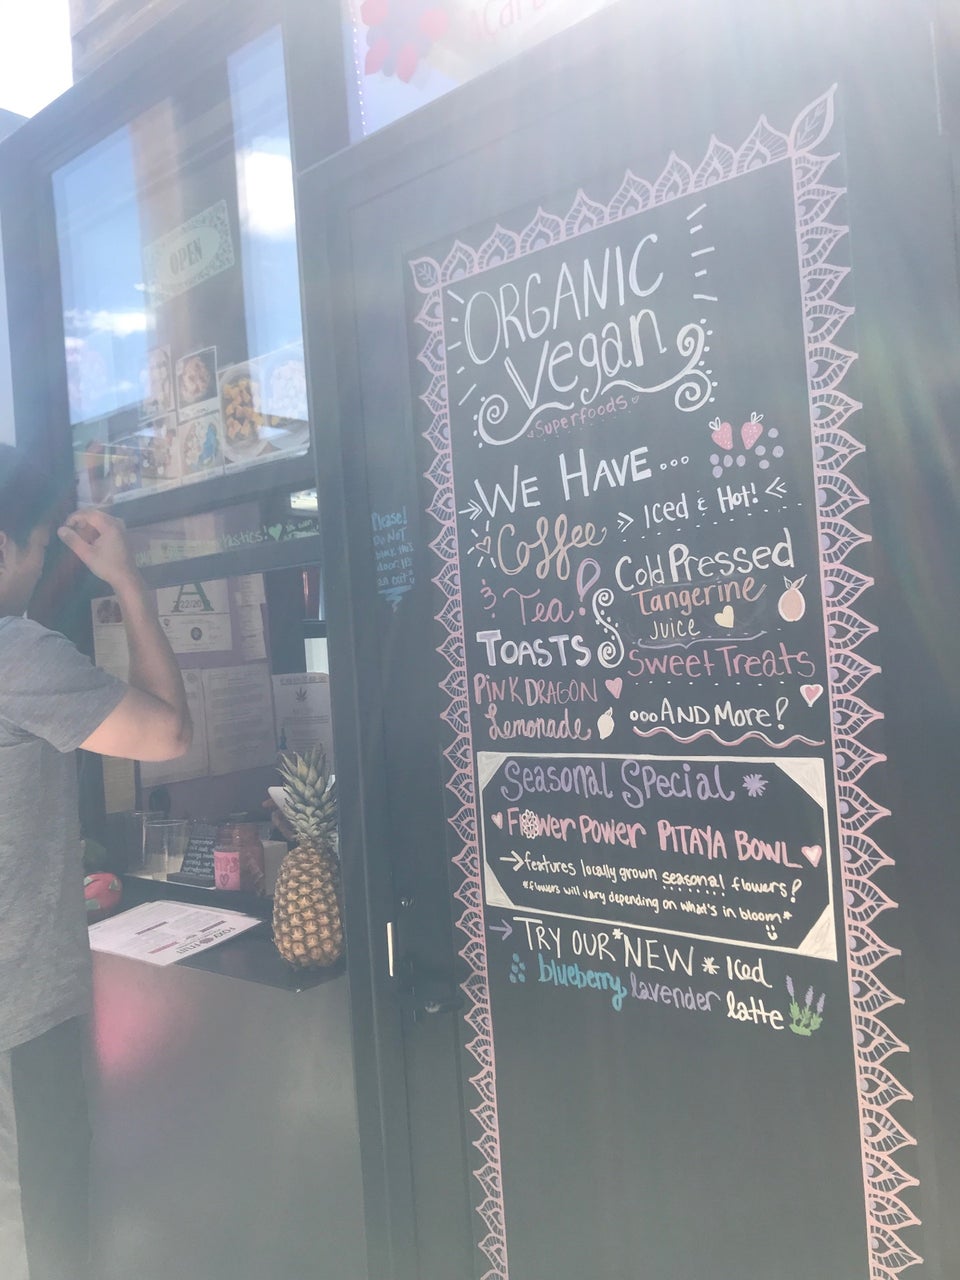 Acai B
OPEN
ORGANIC
Vegan
Superfoods
WE HAVE...
Coffee
Iced & Hot!
& Tea!
Cold Pressed
Tangerine
JUICE
TOASTS
Sweet Treats
PiNK DRAGON
Lemonade
...AND More!
Seasonal Special
Flower Power PiTAYA BOWL
features locally grown seasonal flowers!
*flowers will vary depending on what's in bloom*
TRY OUR *NEW * Iced
blueberry lavender latte
Please!
Do NOT
block this
door. It's
an exit
plastics!
A
TIPS